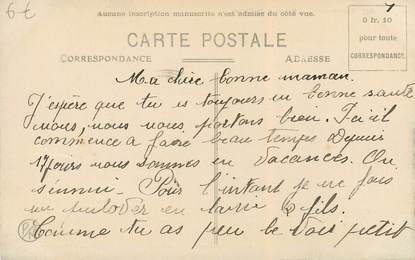 6€
Aucune inscription manuscrite n'est admise du côté vue.
CARTE POSTALE
0 fr. 10
pour toute
CORRESPONDANCE
CORRESPONDANCE
ADRESSE
Ma chère bonne maman.
J'espère que tu es toujours en bonne santé
nous, nous nous portons bien. Ici il
commence à faire beau temps Depuis
17 jours nous sommes en vacances. On
s'ennui. Pour l'instant je ne fais
un en laine fils.
Comme tu as peu le vois petit